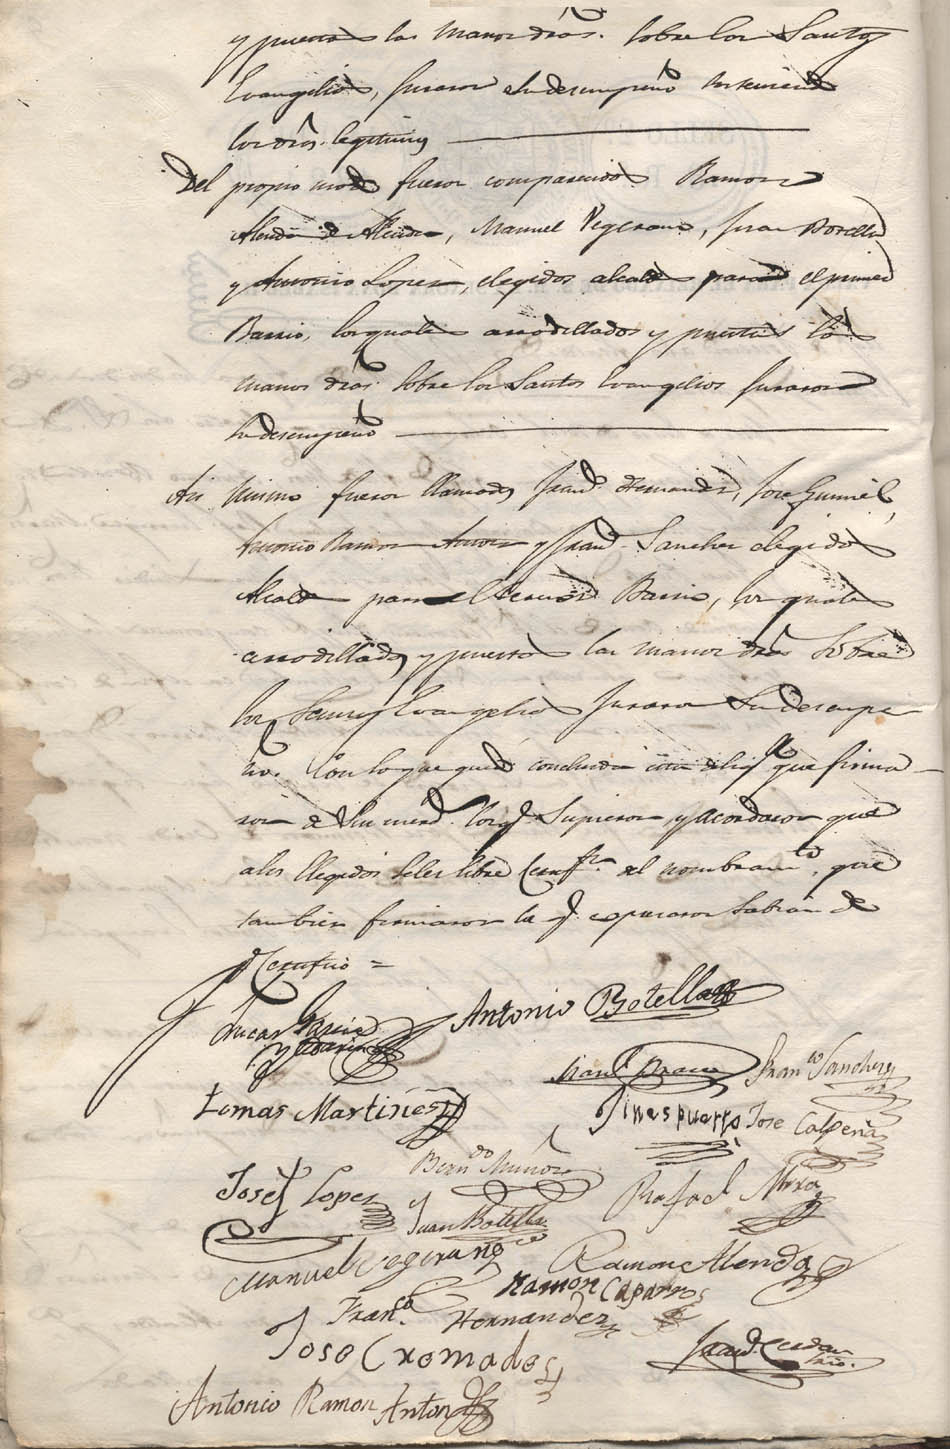 y puestas las manos dras. sobre los Santos
Evangelios, juraron el desempeño
los dros. legitimos
Del propio modo fueron comparecidos Ramon
Alenda de Alenda, Manuel Vegerano, Juan Botella
y Antonio Lopez, elegidos alcaldes para el primer
Barrio, los quales arrodillados y puestas las
manos dras. sobre los Santos Evangelios juraron
su desempeño
Asi mismo fueron llamados Fran.co Hernandez, Jose
Antonio Ramon Anton y Fran.co Sanchez elegidos
Alcaldes para el segundo Barrio, los quales
arrodillados y puestas las manos dras. sobre
los Santos Evangelios juraron su desempe
ño. Con lo que quedó concluida esta dilig.a que firma
ron de sus merd. los q.e supieron, y acordaron que
a los elegidos se les libre Certif.on del nombram.to, que
tambien firmaron los q. espusaron sabian de
q. Certifico =
Lucas Garcia
y
Antonio Botella
Fran.co Bravo
Fran.co Sanchez
Tomas Martines
Gines puerto
Jose Calpena
Bern.do Muños
Josef Lopez
Rafael Mira
Juan Botella
Manuel Vegerano
Ramon Alenda
Ramon Caparros
Fran.co Hernandez
Jose Cremades
Fran.co Cerdan
Srio.
Antonio Ramon Anton